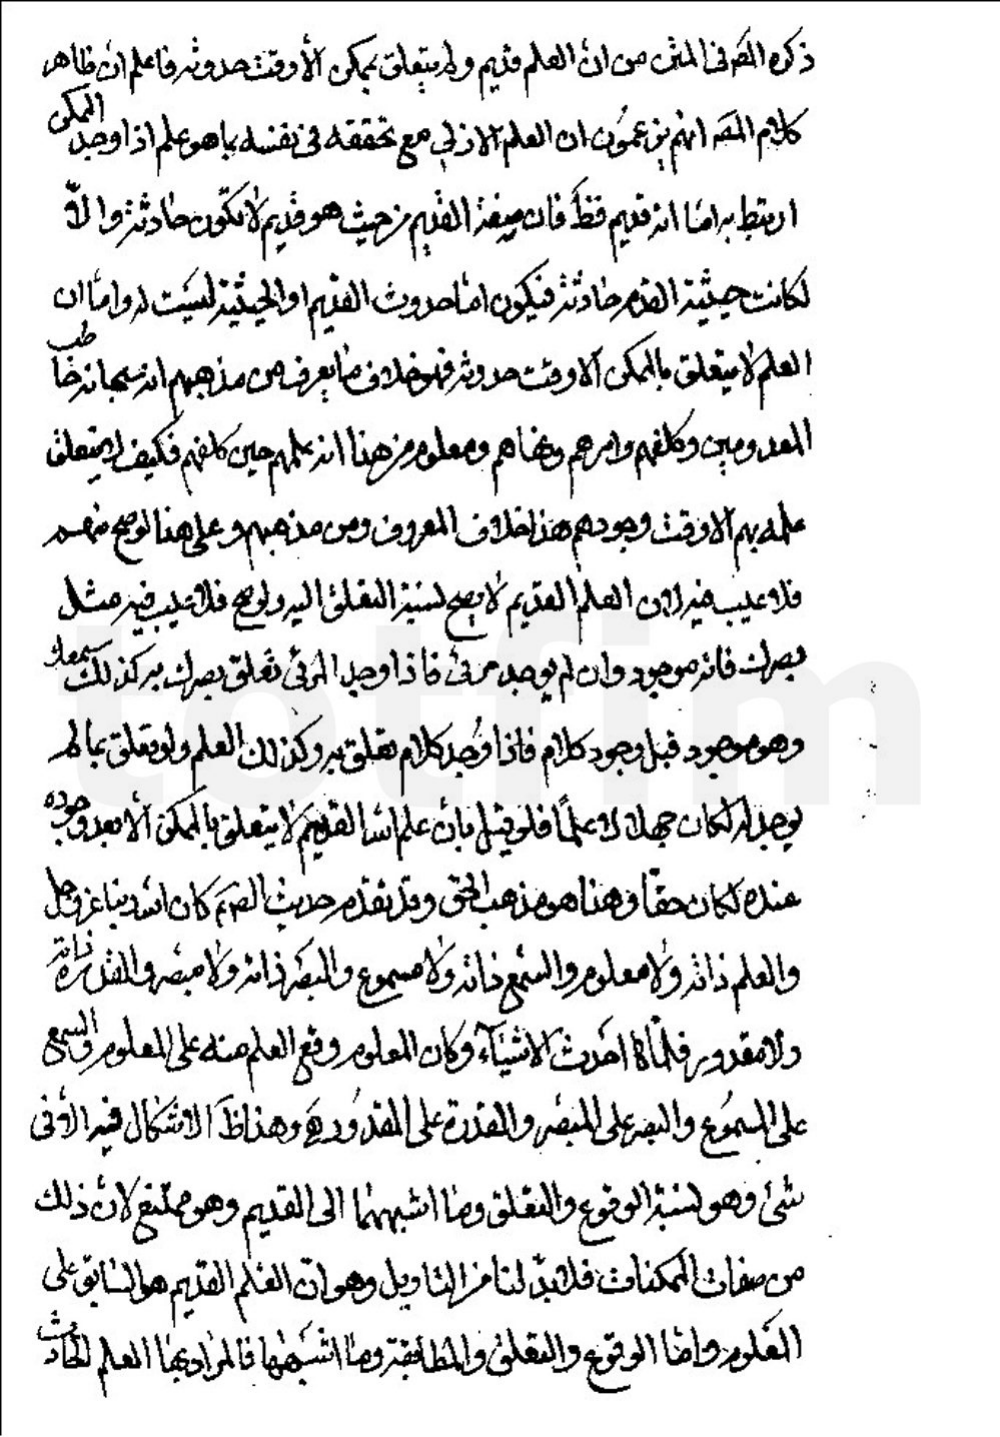 ذكره المصَ فى المتن من ان العلم قديم ولم يتعلق بممكن الا وقت حدوثه فاعلم ان ظاهر
كلام المصَ انهم يزعمون ان العلم الازلي مع تحققه فى نفسه بما هو علم اذا وجد الممكن
ارتبط به امّا انه قديم فظَ فان صفة القديم من حيث هو قديم لا تكون حادثة والّا
لكانت حيثية القدم حادثة فيكون امّا حدوث القديم او الحيثية ليست له واما ان
العلم لا يتعلق بالممكن الا وقت حدوثه فهو خلاف ما يعرف من مذهبهم انه سبحانه خاطب
المعدومين وكلفهم وامرهم ونهاهم ومعلوم من هذا انه علمهم حين كلفهم فكيف لا يتعلق
علمه بهم الا وقت وجودهم هذا خلاف المعروف من مذهبهم وعلى هذا لو صح منهم
فلا عيب فيه لان العلم القديم لا يصح نسبة التعلق اليه ولو صح فلا عيب فيه مثل
بصرك فانه موجود وان لم يوجد مرئى فاذا وجد المرئى تعلق بصرك به كذلك سمعك
وهو موجود قبل وجود كلام فاذا وُجد كلام تعلق به وكذلك العلم ولو تعلق بما لم
يوجد له لكان جهلا لا علمًا فلو قيل بان علم الله القديم لا يتعلق بالممكن الا بعد وجوده
عنده لكان حقّا وهذا هو مذهب الحق وقد تقدم حديث الصَ كان الله ربنا عز وجل
والعلم ذاته ولا معلوم والسّمع ذاته ولا مسموع والبصَر ذاته ولا مبصَر والقدرة ذاته
ولا مقدور فلمّا احدث الاشيَآء وكان المعلوم وقع العلم منه على المعلوم والسمع
على المسمُوع والبصر على المبصَر والقدرة على المقدُور هَ وهذا ظَ لا اشكال فيه الا فى
شئ وهو نسبة الوقوع والتعلق وما اشبههما الى القديم وهو ممتنع لان ذلك
من صفات الممكنات فلا بدّ لنا من التاويل وهو ان العلم القديم هو السّابق على
المعلوم وامّا الوقوع والتعلق والمطابقة وما اشبهها فالمراد بها العلم الحادث
totfim